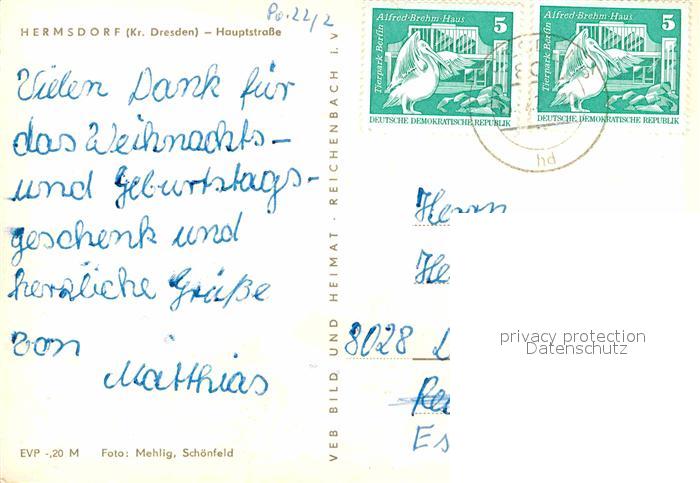 Po.22/2
HERMSDORF (Kr. Dresden) – Hauptstraße
Vielen Dank für
das Weihnachts-
und Geburtstags-
geschenk und
herzliche Grüße
von
Matthias
EVP -,20 M Foto: Mehlig, Schönfeld
VEB BILD UND HEIMAT · REICHENBACH I. V.
Alfred-Brehm-Haus
5
Tierpark Berlin
DEUTSCHE DEMOKRATISCHE REPUBLIK
Alfred-Brehm-Haus
5
Tierpark Berlin
DEUTSCHE DEMOKRATISCHE REPUBLIK
hd
Herrn
He
8028 D
Es
privacy protection
Datenschutz